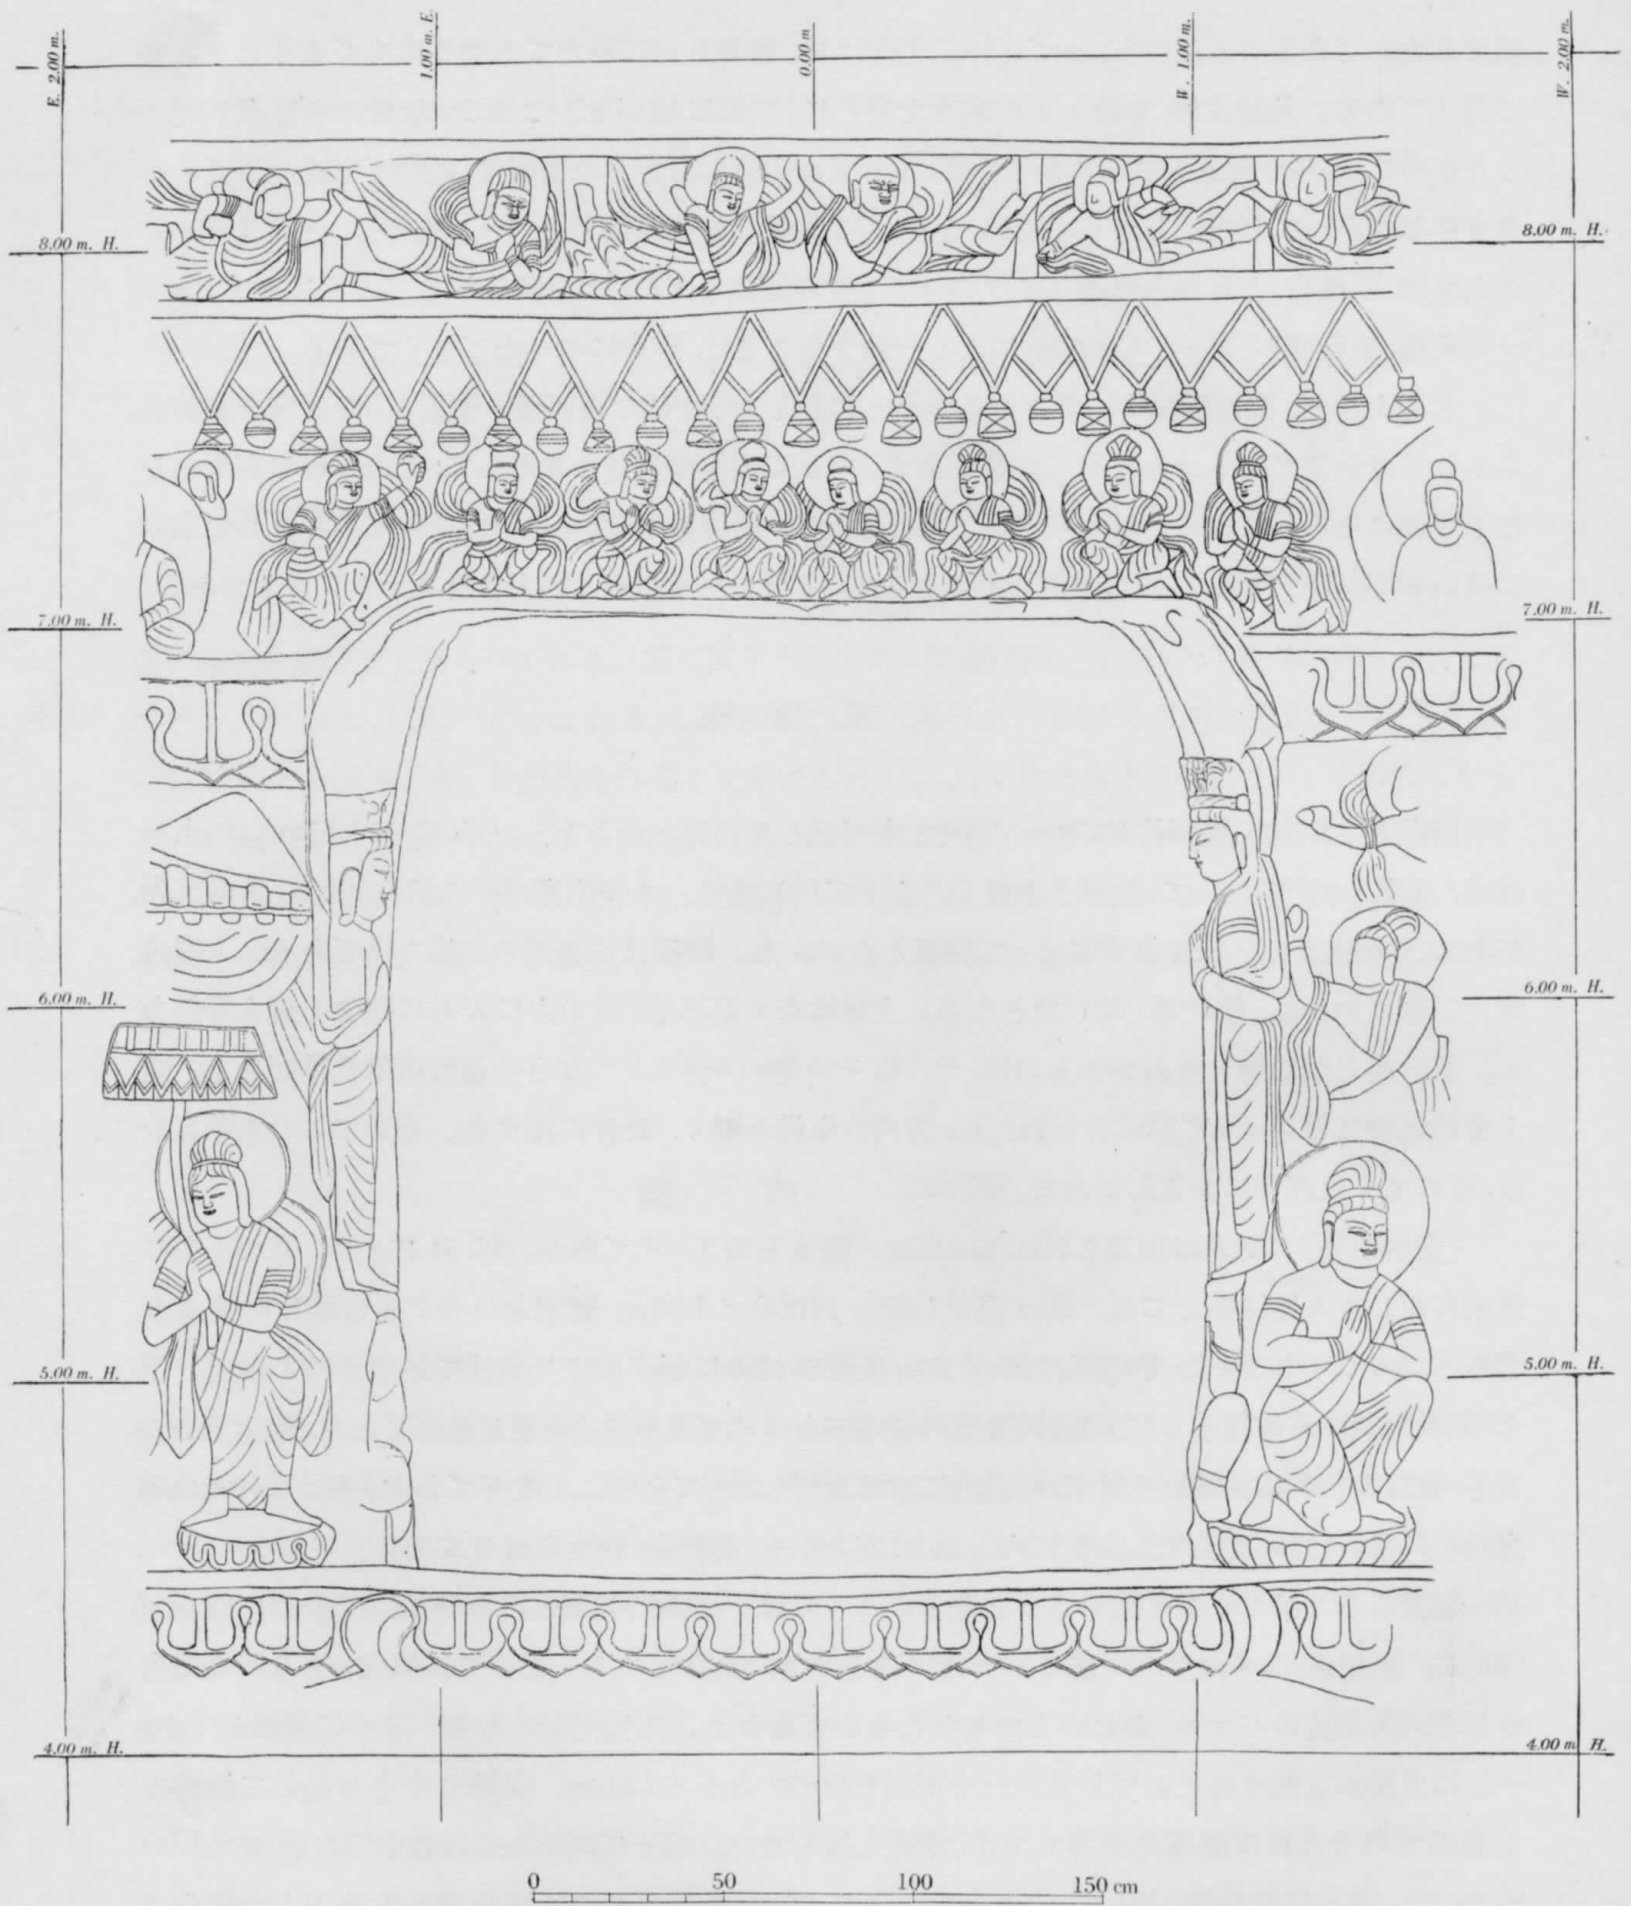 E. 2.00 m.
1.00 m. E.
0.00 m
W. 1.00 m.
W. 2.00 m.
8.00 m. H.
8.00 m. H.
7.00 m. H.
7.00 m. H.
6.00 m. H.
6.00 m. H.
5.00 m. H.
5.00 m. H.
4.00 m. H.
4.00 m. H.
0 50 100 150 cm